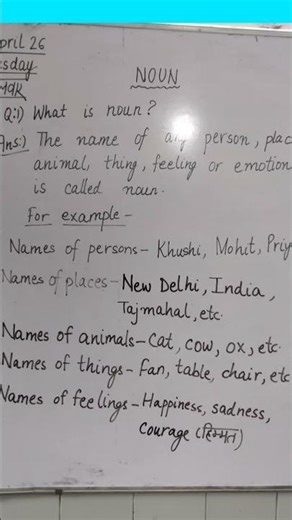 pril 26
sday
NOUN
Q:1) What is noun?
Ans:) The name of any person, plac
animal, thing, feeling or emotion
is called noun.
For example-
Names of persons- Khushi, Mohit, Priy
Names of places- New Delhi, India,
Tajmahal, etc.
Names of animals- Cat, cow, ox, etc.
Names of things- Fan, table, chair, etc
Names of feelings- Happiness, sadness,
Courage (हिम्मत)